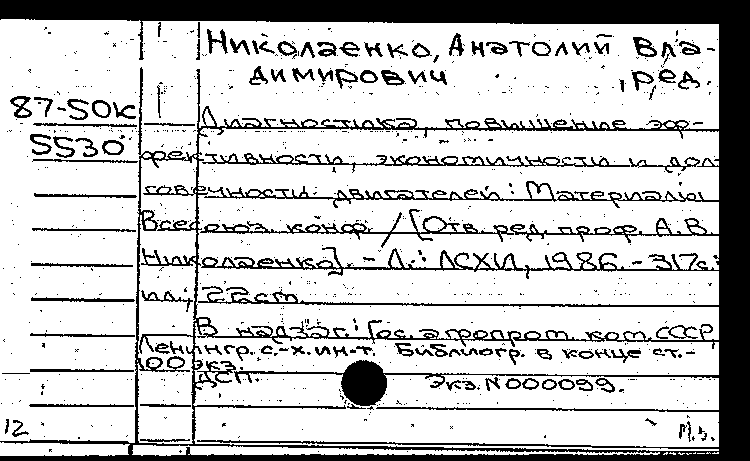 Николаенко, Анатолий Вла-
димирович , ред.
87-50К
5530
Диагностика, повышение эф-
фективности, экономичности и дол-
говечности двигателей: Материалы
Всесоюз. конф. / [Отв. ред. проф. А.В.
Николаенко]. - Л.: ЛСХИ, 1986. - 317с.:
ил.; 22см.
В надзаг.: Гос. агропром. ком. СССР,
Ленингр. с.-х. ин-т. Библиогр. в конце ст.-
100 экз.
ДСП. Экз. N 000099.
12